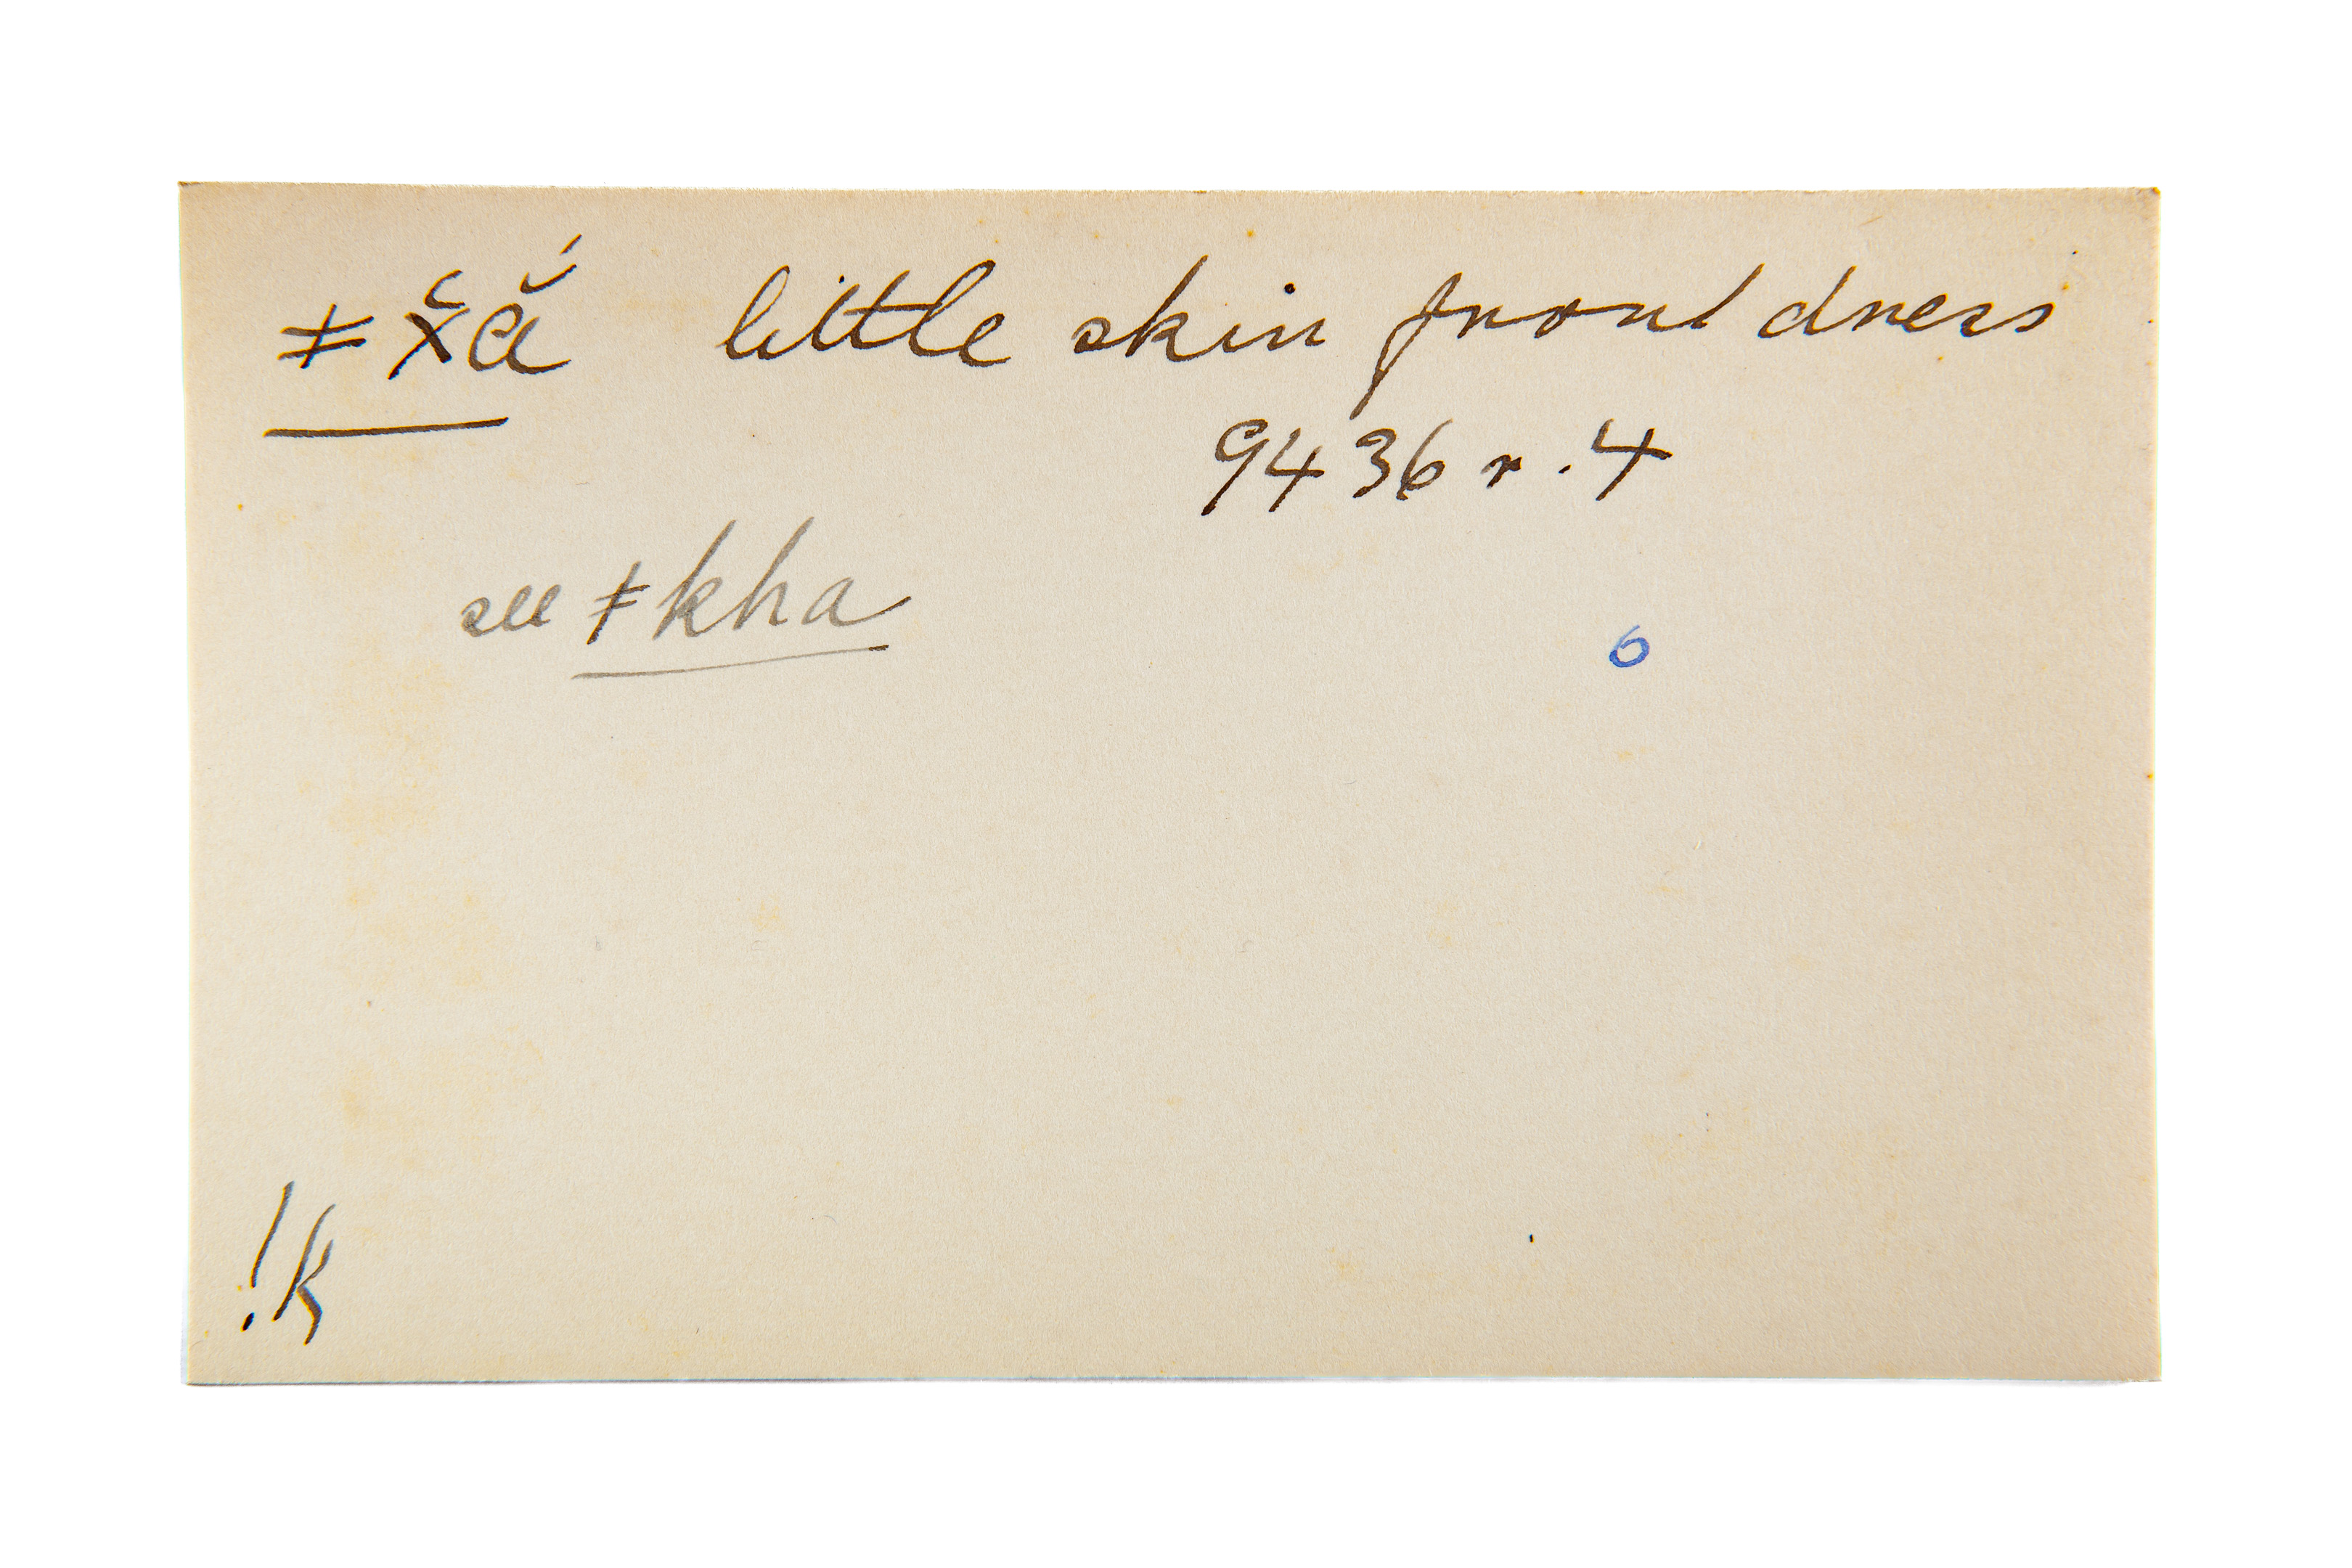 ǂx̆ắ little skin front dress
9436 r. 4
see ǂkha
6
!k